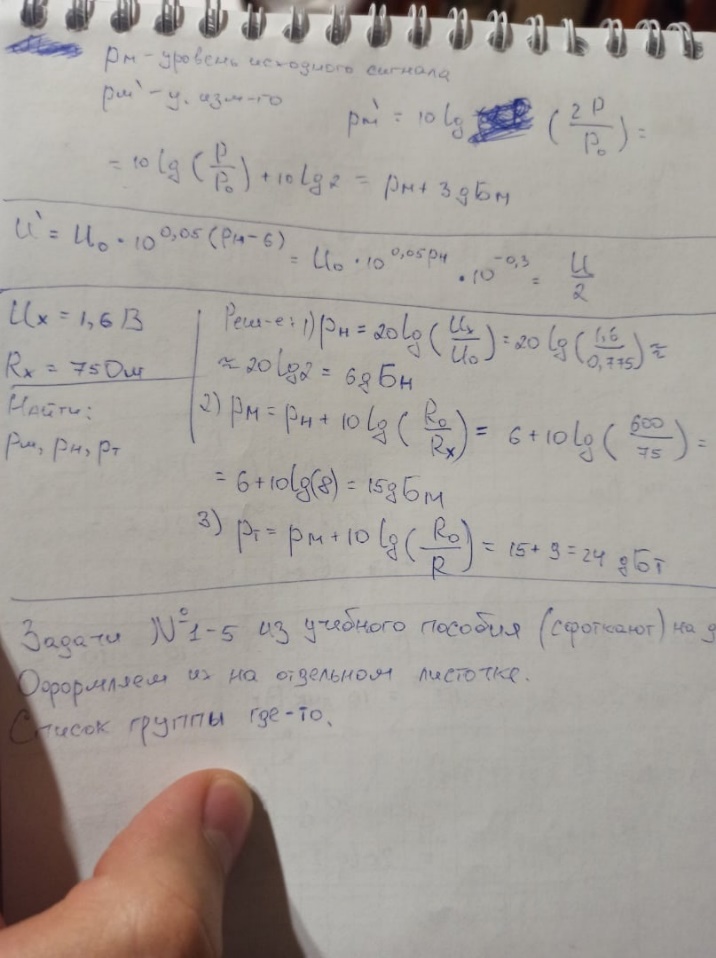 рм - уровень исходного сигнала
рм' - у. изм-го
рм' = 10 lg (2P/P₀) =
= 10 lg (P/P₀) + 10 lg 2 = рм + 3 дБм
U' = U₀ · 10^0,05(рн-6) = U₀ · 10^0,05рн · 10^-0,3 = U/2
Uх = 1,6 В
Rх = 75 Ом
Найти:
рм, рн, рт
Реш-е: 1) рн = 20 lg (Uх/U₀) = 20 lg (1,6/0,775) ≈
≈ 20 lg 2 = 6 дБн
2) рм = рн + 10 lg (R₀/Rх) = 6 + 10 lg (600/75) =
= 6 + 10 lg(8) = 15 дБм
3) рт = рм + 10 lg (R₀/R) = 15 + 9 = 24 дБт
Задачи №1-5 из учебного пособия (сфоткают) на д
Оформляем их на отдельном листочке.
Список группы где-то.